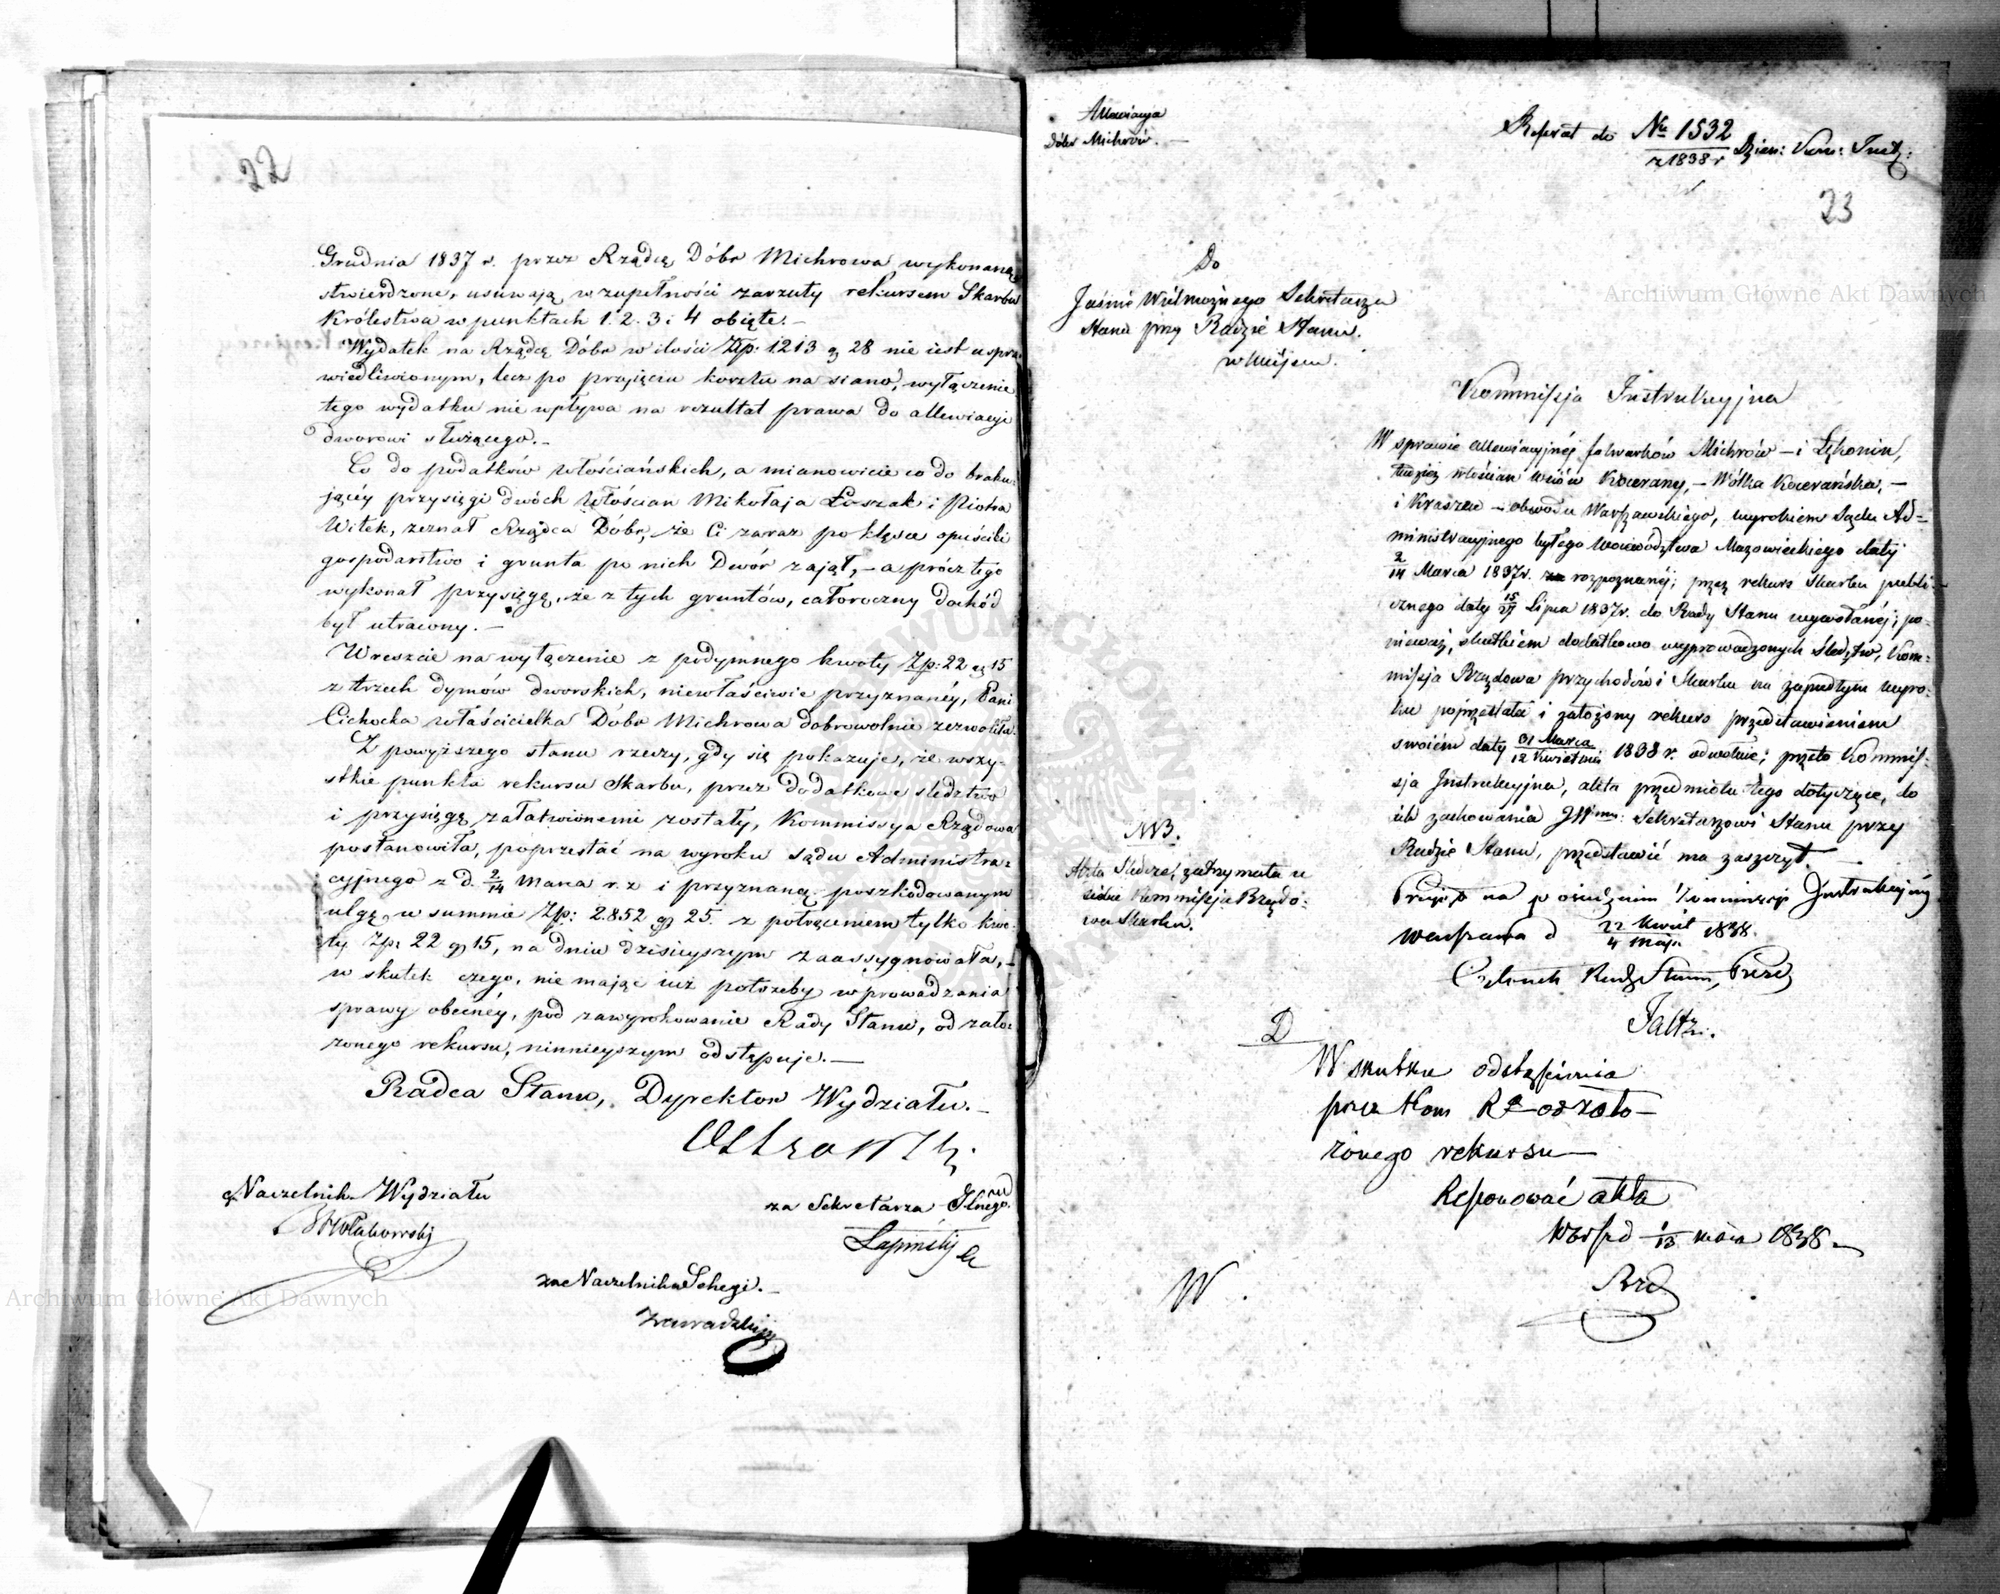 22
Grudnia 1837 r. przez Rządcę Dóbr Michrowa wykonaną
stwierdzone, usuwają w zupełności zarzuty rekursem Skarbu
Królestwa w punktach 1. 2. 3 i 4 obięte.—
Wydatek na Rządcę Dóbr w ilości Złp: 1213 gr 28 nie iest uspra-
wiedliwionym, lecz po przyięciu kosztu na siano, wyłączenie
tego wydatku nie wpływa na rezultat prawa do allewiacyi
dworowi służącego.—
Co do podatków włościańskich, a mianowicie co do braku-
jącéy przysięgi dwóch włościan Mikołaja Łuszak i Piotra
Witek, zeznał Rządca Dóbr, że Ci zaraz po klęsce opuścili
gospodarstwo i grunta po nich Dwór zajął,— a prócz tego
wykonał przysięgę, że z tych gruntów, całoroczny dochód
był utracony.—
Wreszcie na wyłączenie z podymnego kwoty Zp: 22 gr 15
z trzech dymów dworskich, niewłaściwie przyznanéy, Pani
Cichocka właścicielka Dóbr Michrowa dobrowolnie zezwoliła.
Z powyższego stanu rzeczy, gdy się pokazuje, że wszy-
stkie punkta rekursu Skarbu, przez dodatkowe śledztwo
i przysięgę załatwionemi zostały, Kommissya Rządowa
postanowiła, poprzestać na wyroku sądu Administra-
cyjnego z d. 2/14 Marca r. z i przyznaną poszkodowanym
ulgę, w summie Zp: 2.852 gr 25. z potrąceniem tylko kwo-
ty Zp: 22 gr 15, na dniu dzisieyszym zaassygnowała,—
w skutek czego, nie mając iuż potrzeby wprowadzania
sprawy obecnéy, pod zawyrokowanie Rady Stanu, od zało-
żonego rekursu, ninnieyszym odstępuje.—
Radca Stanu, Dyrektor Wydziału.—
Naczelnik Wydziału
za Sekretarza Jlnego
za Naczelnika Sekcyi.—
Zawadzki
Allewiacya
Dóbr Michrów.—
Referat do Nr 1532 / z 1838 r Dzien: Kom: Instr:
23
Do
Jaśnie Wielmożnego Sekretarza
Stanu przy Radzie Stanu.
w miejscu.
Kommissja Instrukcyjna
W sprawie allewiacyjnéj folwarków Michrów — i Łękonin,
tudzież włościan wsiów Kocerany, — Wólka Kocerańska, —
i Kraszew — obwodu Warszawskiego, wyrokiem Sądu Ad-
ministracyjnego byłego Województwa Mazowieckiego daty
2/14 Marca 1837 r. rozpoznanéj; przez rekurs Skarbu publi-
cznego daty 15/27 Lipca 1837 r. do Rady Stanu wywołanéj; po-
nieważ, skutkiem dodatkowo wyprowadzonych śledztw, Kom-
missja Rządowa przychodów i Skarbu na zapadłym wyro-
ku poprzestała i założony rekurs przedstawieniem
swoiém daty 31 Marca / 12 Kwietnia 1838 r. odwołuie; przeto Kommis-
sja Instrukcyjna, akta przedmiotu tego dotyczące, do
ich zachowania JWmu: Sekretarzowi Stanu przy
Radzie Stanu, przedstawić ma zaszczyt.—
Przyięto na posiedzeniu Kommissyi Instrukcyjnéj
Warszawa d 22 Kwiet / 4 Maja 1838.
Członek Rady Stanu, Prezd
NB.
Akta Śledcze, zatrzymała u
siebie Kommissja Rządo-
wa Skarbu.
D
W skutku odstąpienia
przez Kom R P od zało-
żonego rekursu—
Reponować akta
Wars d 1/13 maia 1838.—
W.
Archiwum Główne Akt Dawnych
Archiwum Główne Akt Dawnych